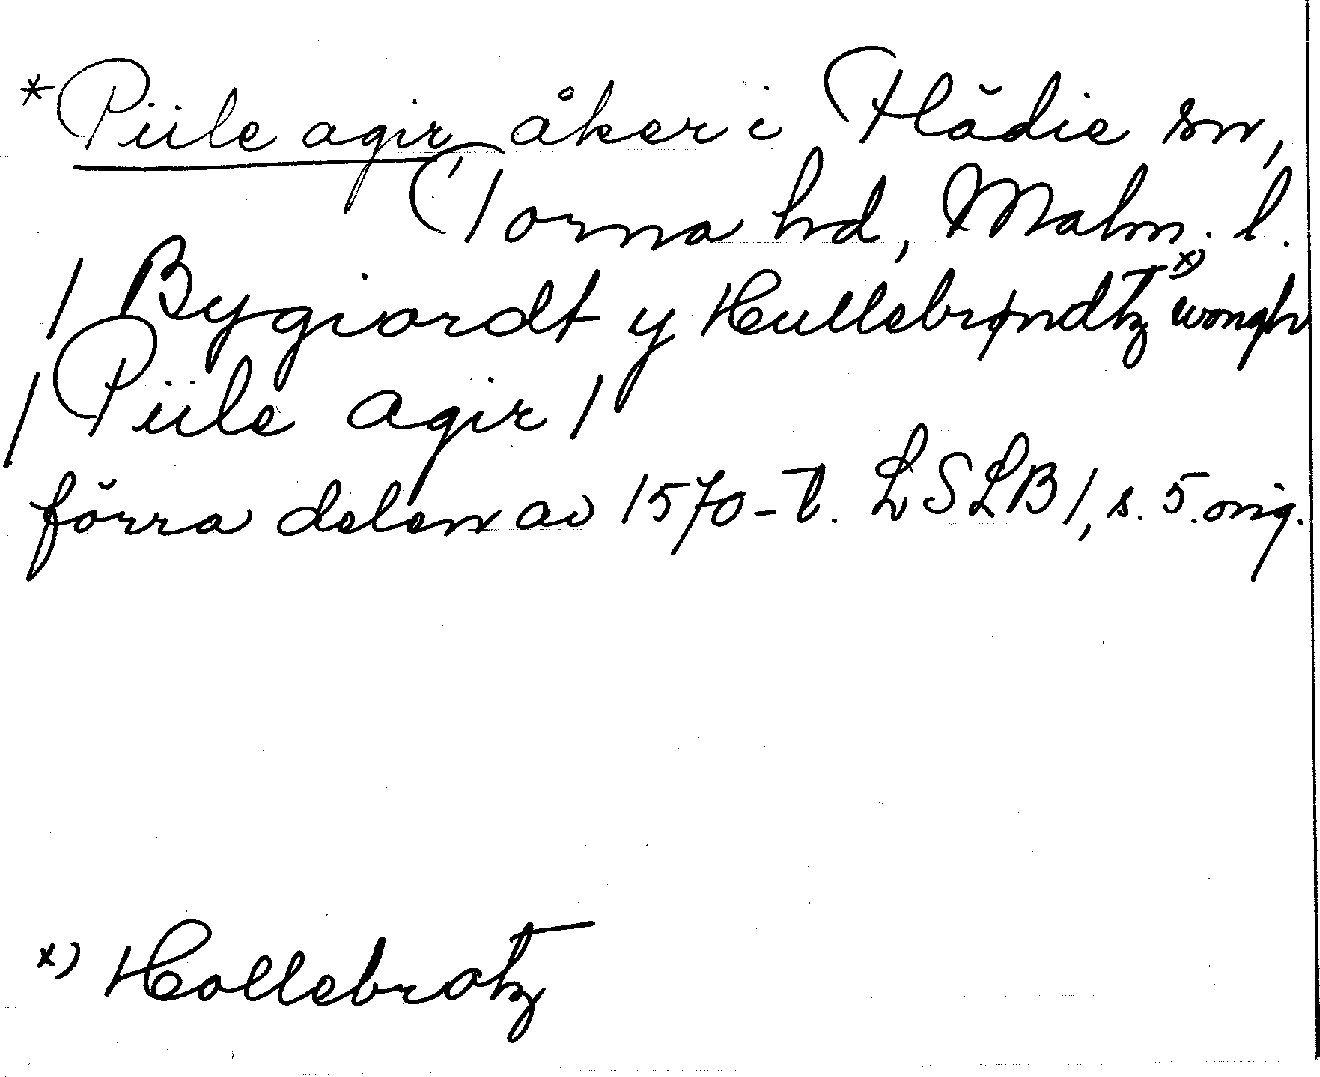 *Piile agir, åker i Flädie sn,
Torna hd, Malm. l.
/ Bygiordt y Hullebrøndtz x) wongh
/ Piile agir /
förra delen av 1570-t. LSLB 1, s. 5. orig.
x) Hollebrotz